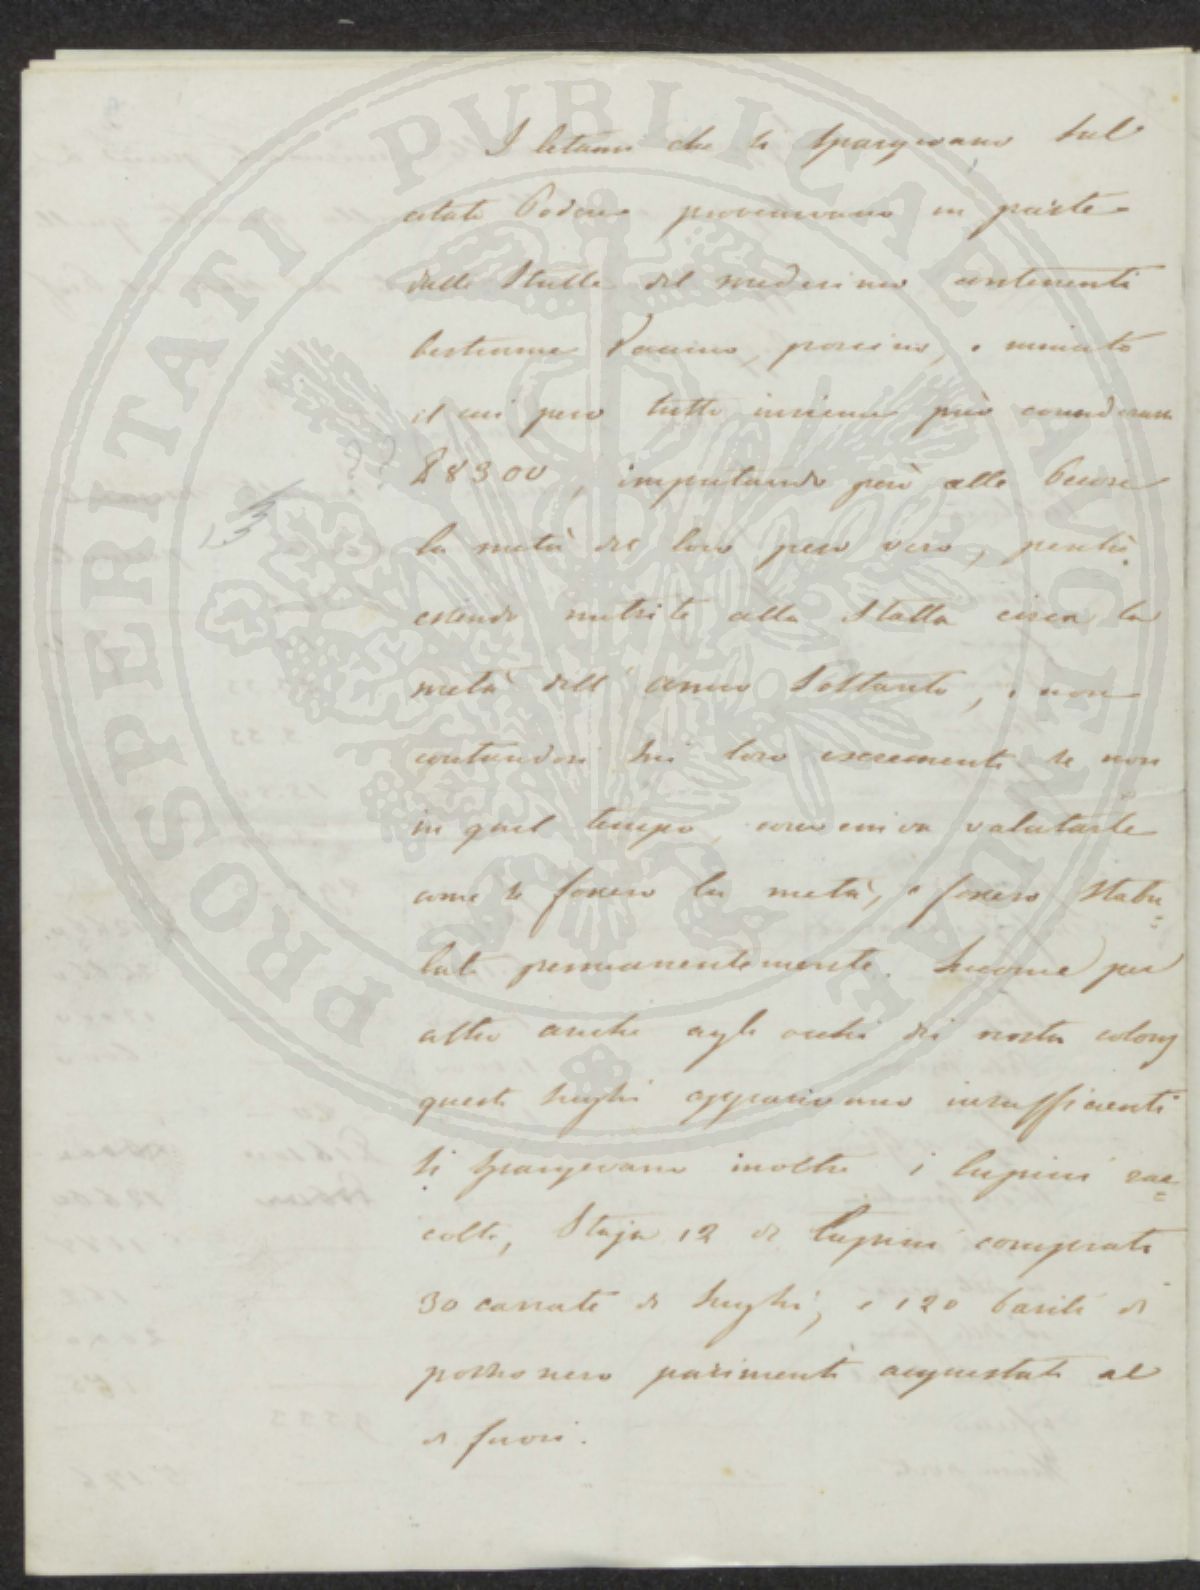 I letami che si spargevano sul
citato Podere provenivano in parte
dalle Stalle del medesimo contenenti
bestiame Vaccino, porcino, e minuto
il cui peso tutto insieme può considerarsi
8300, imputando però alle Pecore
la metà del loro peso vero, perchè
essendo nutrite alla Stalla circa la
metà dell' anno soltanto, e non
contandosi sui loro escrementi se non
in quel tempo, conveniva valutarle
come se fossero la metà, e fossero stabu=
late permanentemente. Siccome per
altro anche agli occhi dei nostri coloni
questi sughi apparivano insufficienti
si spargevano inoltre i lupini rac=
colti, Staja 12 di lupini comprati
30 carrate di sughi, e 120 barili di
pozzo nero parimenti acquistati al
di fuori.
PROSPERITATI PUBLICAE AUGENDAE